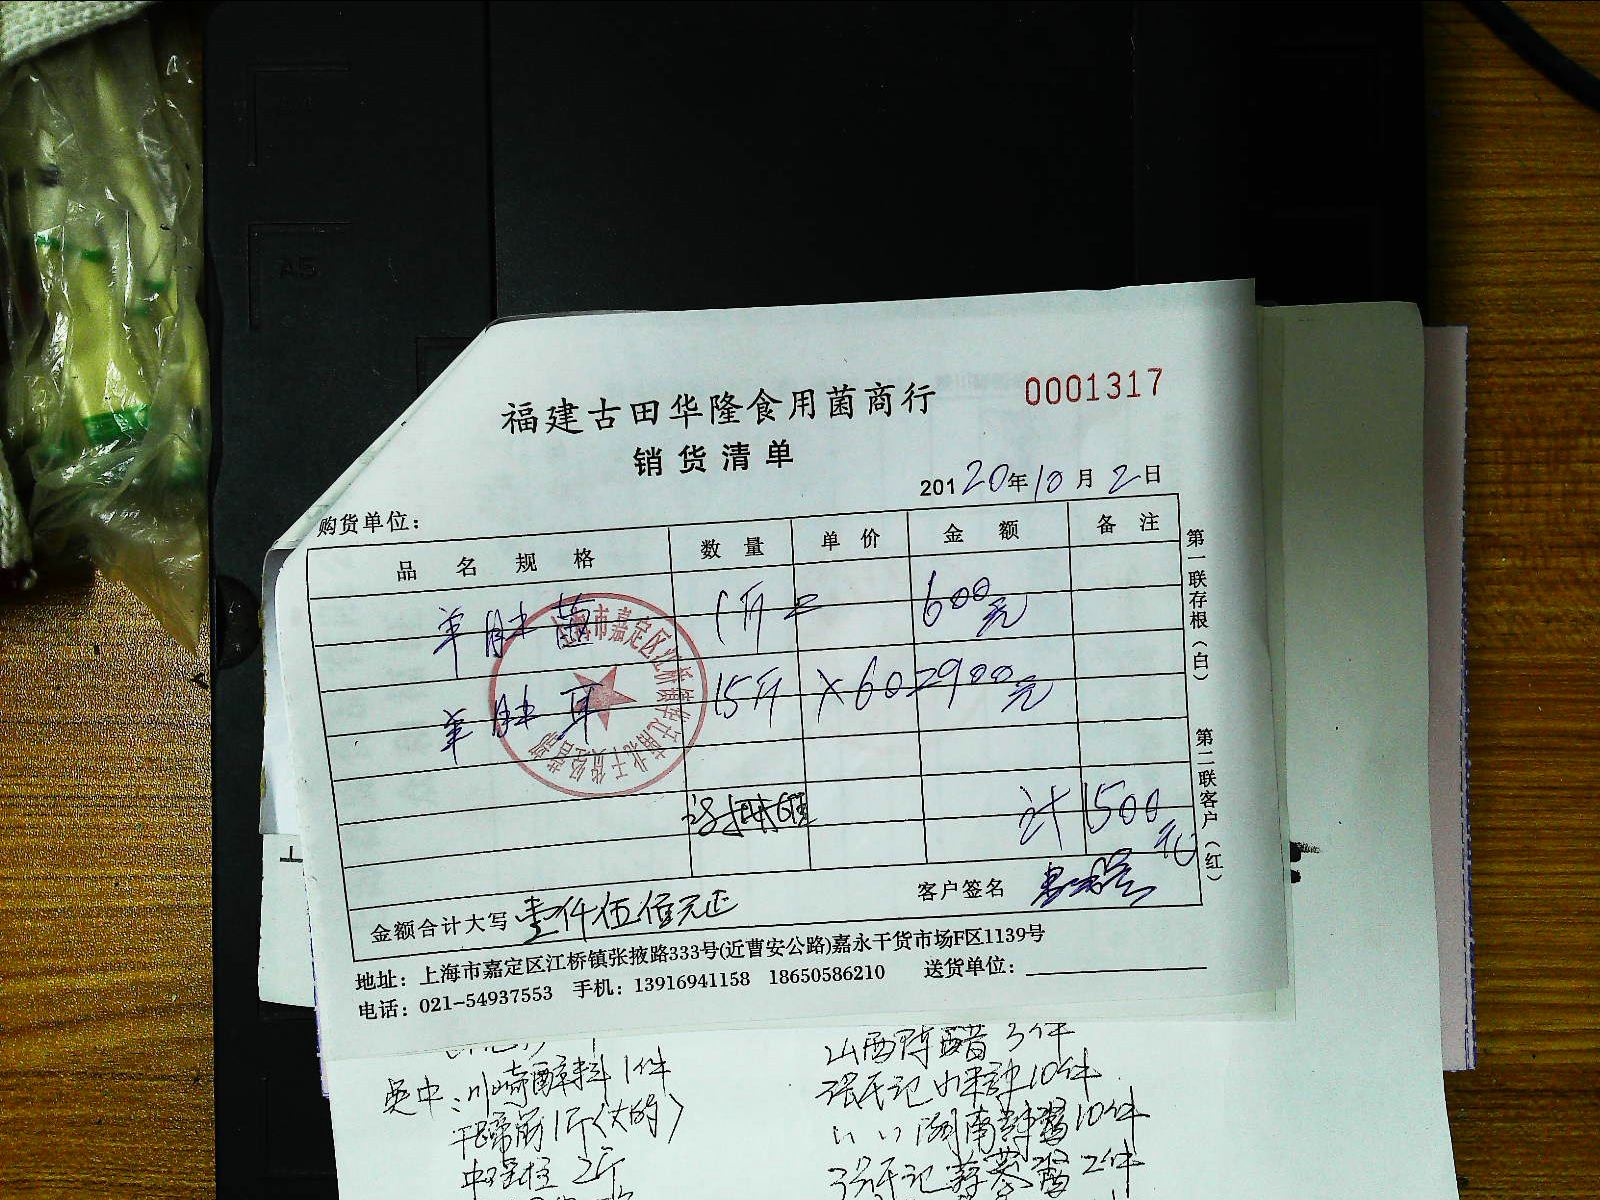 A5
福建古田华隆食用菌商行
0001317
销货清单
20120年10月2日
购货单位：
品名规格 数量 单价 金额 备注
羊肚菌 1斤 = 600元
羊肚耳 15斤 ×60=900元
计1500元
金额合计大写 壹仟伍佰元正
客户签名
地址：上海市嘉定区江桥镇张掖路333号(近曹安公路)嘉永干货市场F区1139号
电话：021-54937553 手机：13916941158 18650586210 送货单位：
第一联存根（白）
第二联客户（红）
山西陈醋3件
吴中：川崎醉料1件
干蹄筋1斤(大的)
2斤
10件
湖南辣酱10件
2件